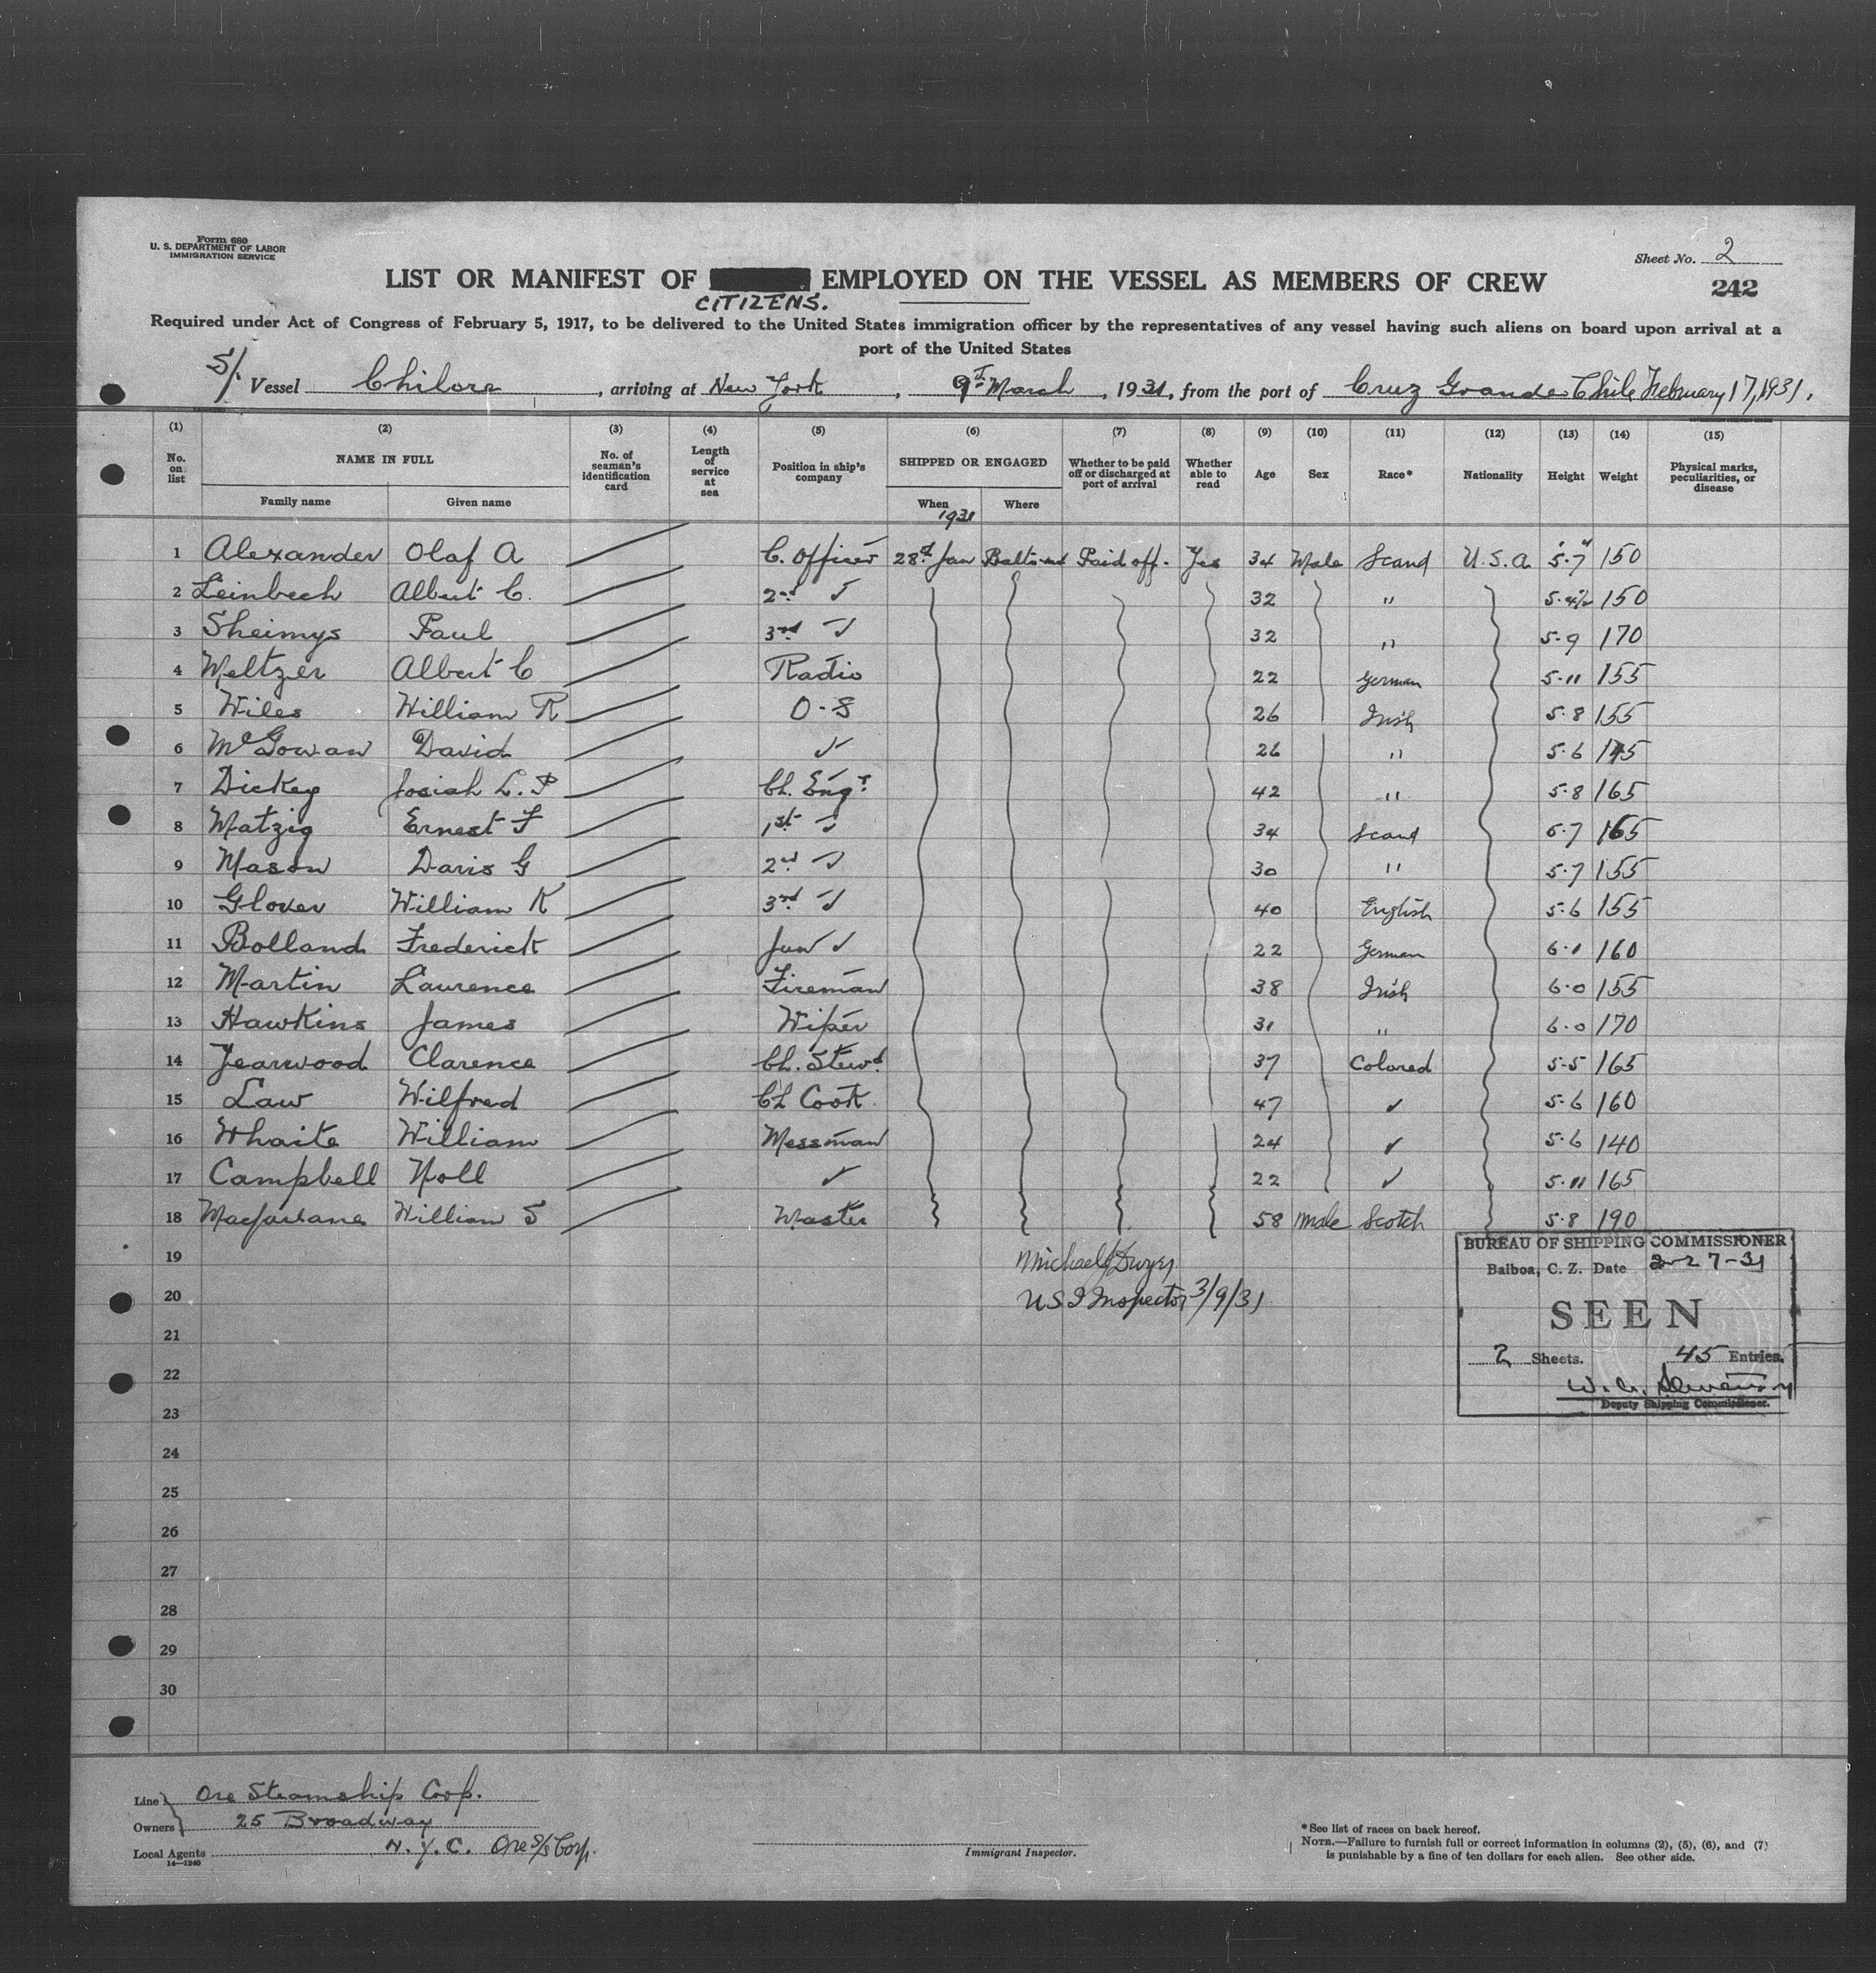 Form 680
U. S. DEPARTMENT OF LABOR
IMMIGRATION SERVICE
Sheet No. 2
LIST OR MANIFEST OF EMPLOYED ON THE VESSEL AS MEMBERS OF CREW
CITIZENS.
242
Required under Act of Congress of February 5, 1917, to be delivered to the United States immigration officer by the representatives of any vessel having such aliens on board upon arrival at a
port of the United States
S/ Vessel Chilore, arriving at New York, 9th March, 1931, from the port of Cruz Grande Chile February 17, 1931.
(1) (2) (3) (4) (5) (6) (7) (8) (9) (10) (11) (12) (13) (14) (15)
No. on list NAME IN FULL No. of seaman's identification card Length of service at sea Position in ship's company SHIPPED OR ENGAGED Whether to be paid off or discharged at port of arrival Whether able to read Age Sex Race* Nationality Height Weight Physical marks, peculiarities, or disease
Family name Given name When Where
1931
1 Alexander Olaf A C. Officer 28th Jan Balto Md Paid off. Yes 34 Male Scand U.S.A. 5'-7" 150
2 Leinbech Albert C. 2nd ✓ 32 " 5-4½ 150
3 Sheimys Paul 3rd ✓ 32 " 5-9 170
4 Meltzer Albert C Radio 22 German 5-11 155
5 Wiles William R O-S 26 Irish 5-8 155
6 McGowan David ✓ 26 " 5-6 145
7 Dickey Josiah L. P Ch. Engr 42 " 5-8 165
8 Matzig Ernest F 1st ✓ 34 Scand 5-7 165
9 Mason Davis G 2nd ✓ 30 " 5-7 155
10 Glover William K 3rd ✓ 40 English 5-6 155
11 Bolland Frederick Jun ✓ 22 German 6-1 160
12 Martin Laurence Fireman 38 Irish 6-0 155
13 Hawkins James Wiper 31 " 6-0 170
14 Yearwood Clarence Ch. Stewd 37 Colored 5-5 165
15 Law Wilfred Ch Cook 47 ✓ 5-6 160
16 Whaite William Messman 24 ✓ 5-6 140
17 Campbell Noll ✓ 22 ✓ 5-11 165
18 Macfarlane William S Master 58 Male Scotch 5-8 190
19
Michael J Dwyer
20
U S I Inspector 3/9/31
21
22
23
24
25
26
27
28
29
30
BUREAU OF SHIPPING COMMISSIONER
Balboa, C. Z. Date 2-27-31
SEEN
2 Sheets. 45 Entries.
W. C.
Deputy Shipping Commissioner.
Line Ore Steamship Corp.
Owners 25 Broadway
Local Agents N.Y.C. Ore S/S Corp.
14—1240
Immigrant Inspector.
*See list of races on back hereof.
NOTE.—Failure to furnish full or correct information in columns (2), (5), (6), and (7)
is punishable by a fine of ten dollars for each alien. See other side.